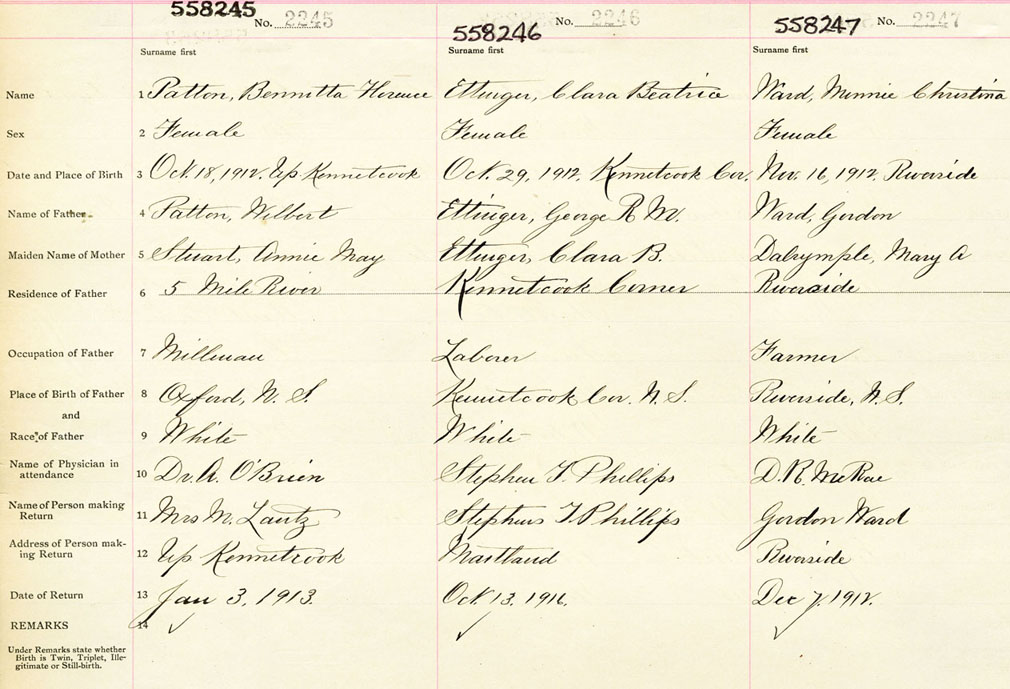 558245 No. 2245 558246 No. 2246 558247 No. 2247
Surname first Surname first Surname first
Name 1 Patton, Bennitta Florence Ettinger, Clara Beatrice Ward, Minnie Christina
Sex 2 Female Female Female
Date and Place of Birth 3 Oct. 18, 1912. Up Kennetcook Oct. 29, 1912. Kennetcook Cor. Nov. 16, 1912. Riverside
Name of Father 4 Patton, Wilbert Ettinger, George R M. Ward, Gordon
Maiden Name of Mother 5 Stuart, Annie May Ettinger, Clara B. Dalrymple, Mary A
Residence of Father 6 5 Mile River Kennetcook Corner Riverside
Occupation of Father 7 Millman Laborer Farmer
Place of Birth of Father 8 Oxford, N. S. Kennetcook Cor. N. S. Riverside, N. S.
and
Race of Father 9 White White White
Name of Physician in
attendance 10 Dr. A. O'Brien Stephen T. Phillips D. R. McRae
Name of Person making
Return 11 Mrs M. Lantz Stephens T Phillips Gordon Ward
Address of Person mak-
ing Return 12 Up Kennetcook Maitland Riverside
Date of Return 13 Jan 3, 1913. Oct 13. 1916. Dec 7. 1912.
REMARKS 14 ✓ ✓ ✓
Under Remarks state whether
Birth is Twin, Triplet, Ille-
gitimate or Still-birth.